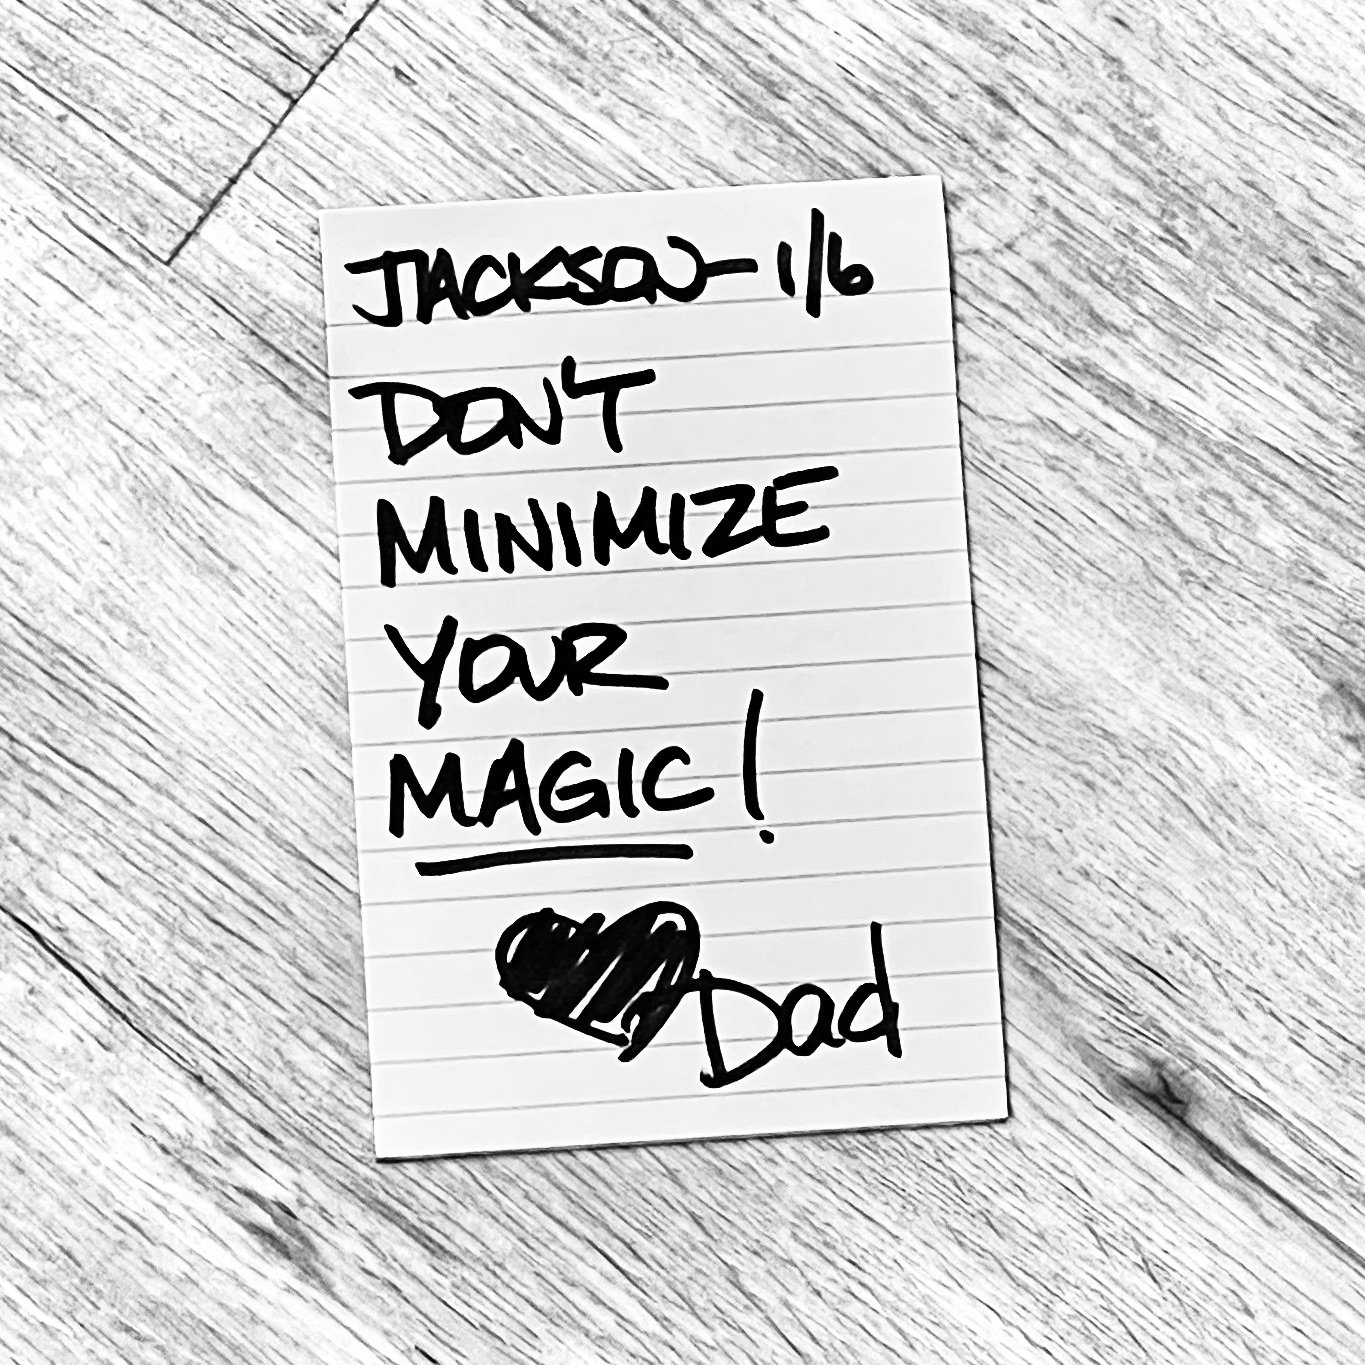 JACKSON- 1/6
DON'T
MINIMIZE
YOUR
MAGIC!
Dad